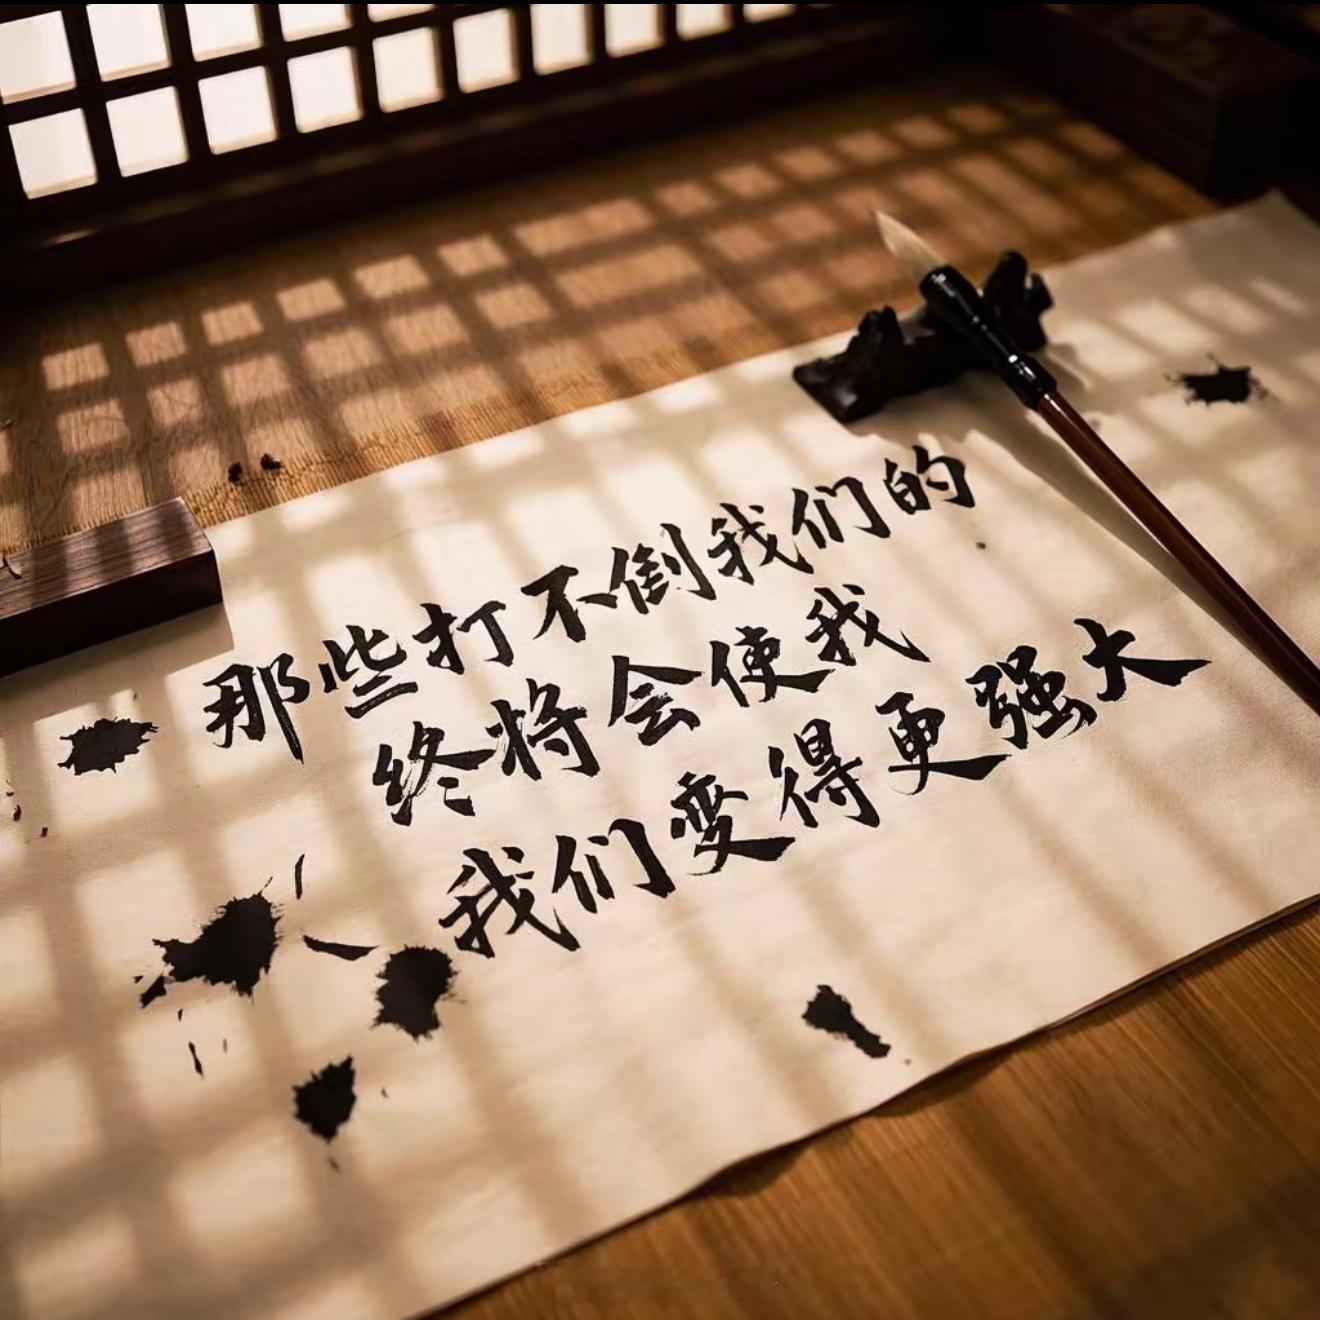 那些打不倒我们的
终将会使我
我们变得更强大